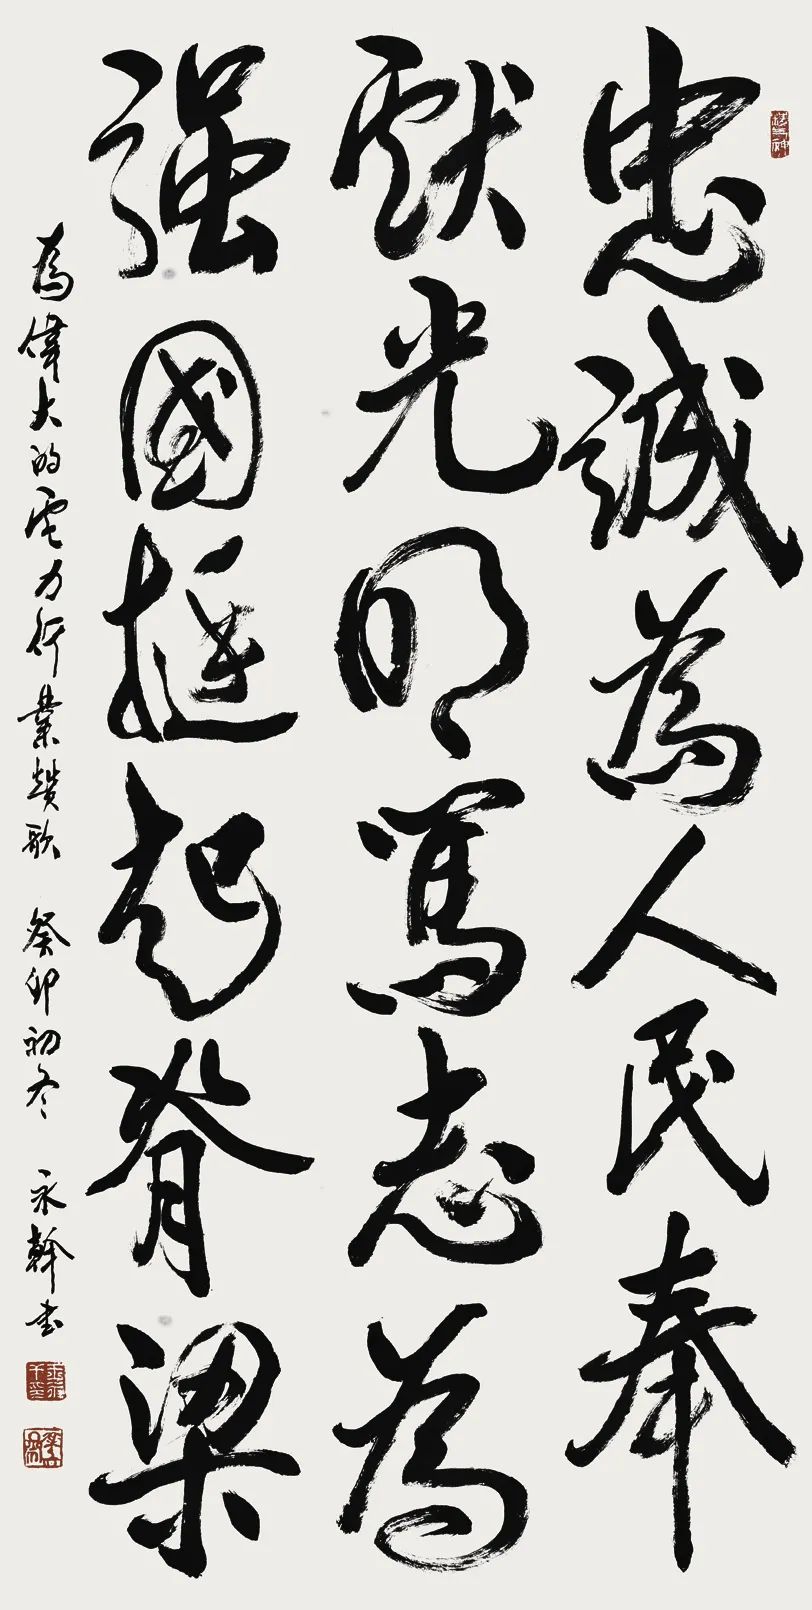 忠誠為人民奉
獻光明篤志為
强國挺起脊梁
為偉大的電力行業贊歌 癸卯初冬 永幹書